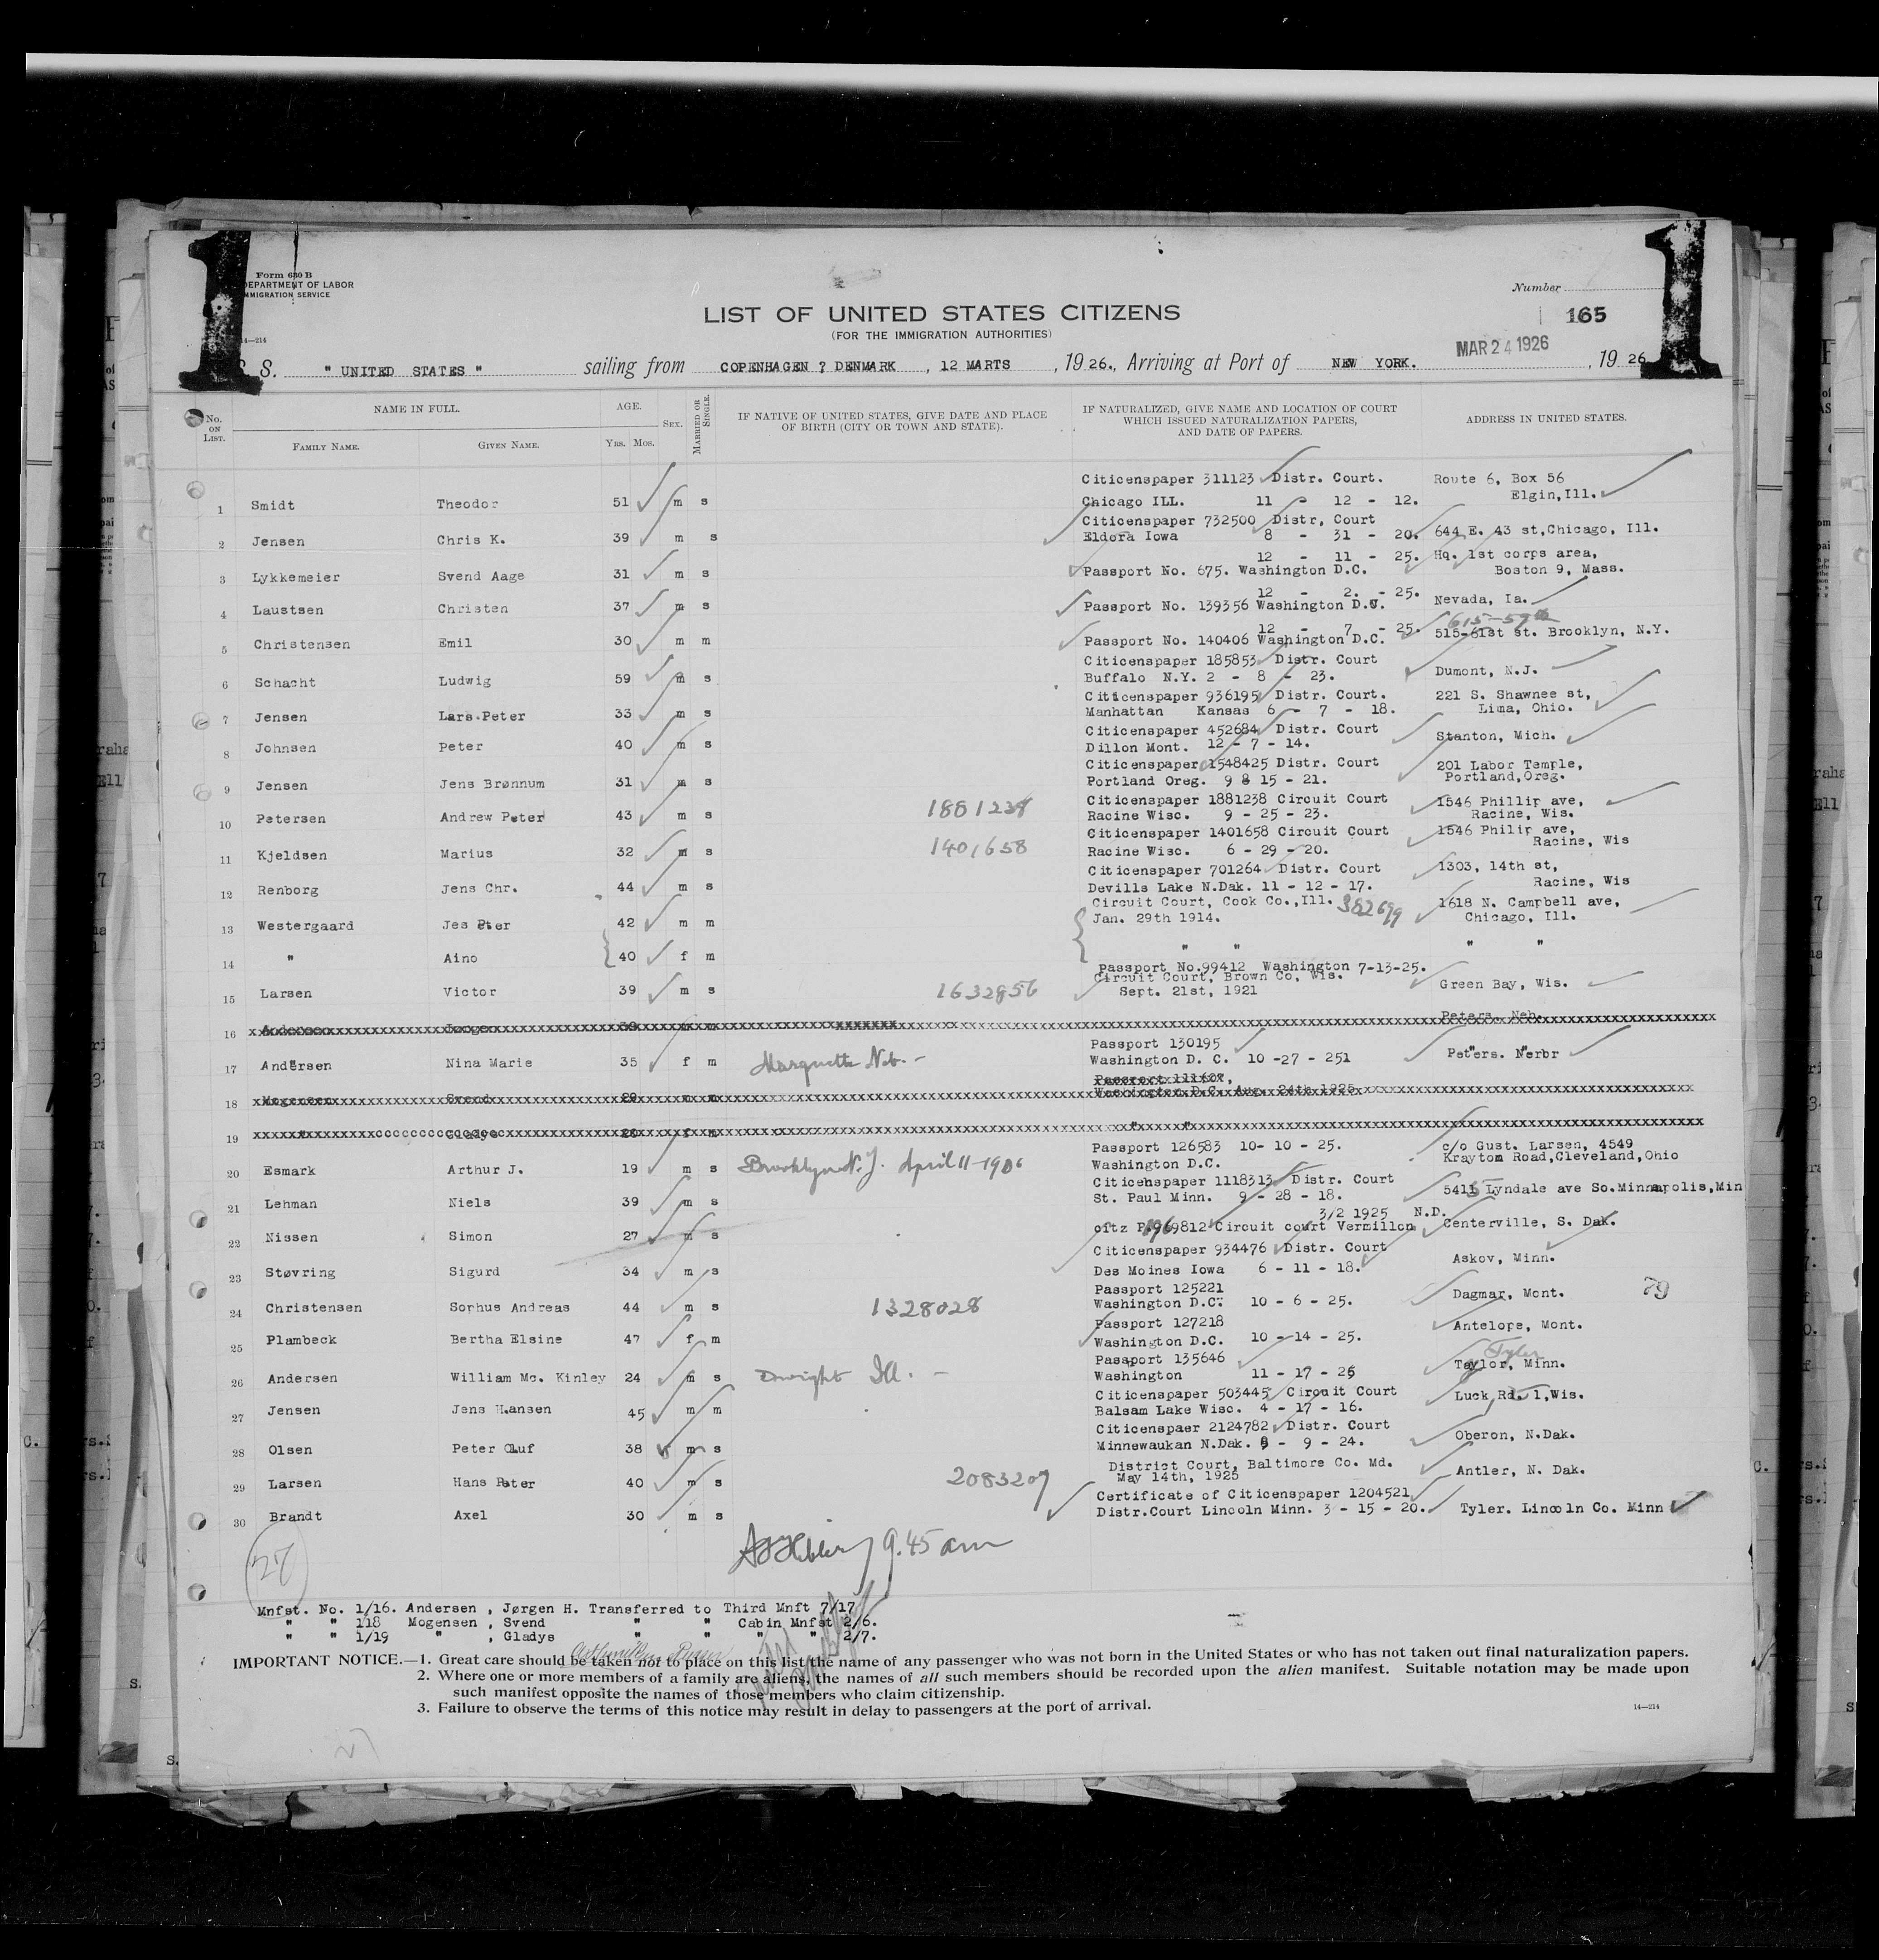 Form 630 B
DEPARTMENT OF LABOR
IMMIGRATION SERVICE
14—214
Number
165
LIST OF UNITED STATES CITIZENS
(FOR THE IMMIGRATION AUTHORITIES)
S. S. " UNITED STATES " sailing from COPENHAGEN ? DENMARK , 12 MARTS , 19 26., Arriving at Port of NEW YORK. MAR 24 1926 , 19 26
No. ON LIST.
NAME IN FULL.
FAMILY NAME. GIVEN NAME.
AGE.
YRS. MOS.
SEX.
MARRIED OR SINGLE.
IF NATIVE OF UNITED STATES, GIVE DATE AND PLACE
OF BIRTH (CITY OR TOWN AND STATE).
IF NATURALIZED, GIVE NAME AND LOCATION OF COURT
WHICH ISSUED NATURALIZATION PAPERS,
AND DATE OF PAPERS.
ADDRESS IN UNITED STATES.
Citicenspaper 311123 Distr. Court. Route 6, Box 56
1 Smidt Theodor 51 m s Chicago ILL. 11 - 12 - 12. Elgin,Ill.
Citicenspaper 732500 Distr, Court
2 Jensen Chris K. 39 m s Eldora Iowa 8 - 31 - 20. 644 E. 43 st,Chicago, Ill.
12 - 11 - 25. Hq. 1st corps area,
3 Lykkemeier Svend Aage 31 m s Passport No. 675. Washington D.C. Boston 9, Mass.
12 - 2. - 25.
4 Laustsen Christen 37 m s Passport No. 139356 Washington D.C. Nevada, Ia.
12 - 7 - 25. 615-59th
5 Christensen Emil 30 m m Passport No. 140406 Washington D.C. 515-61st st. Brooklyn, N.Y.
Citicenspaper 185853 Distr. Court
6 Schacht Ludwig 59 m s Buffalo N.Y. 2 - 8 - 23. Dumont, N.J.
Citicenspaper 936195 Distr. Court. 221 S. Shawnee st,
7 Jensen Lars.Peter 33 m s Manhattan Kansas 6 - 7 - 18. Lima, Ohio.
Citicenspaper 452684 Distr. Court
8 Johnsen Peter 40 m s Dillon Mont. 12 - 7 - 14. Stanton, Mich.
Citicenspaper 1548425 Distr. Court 201 Labor Temple,
9 Jensen Jens Brønnum 31 m s Portland Oreg. 9 8 15 - 21. Portland,Oreg.
Citicenspaper 1881238 Circuit Court 1546 Phillip ave,
10 Petersen Andrew Peter 43 m s 1881238 Racine Wisc. 9 - 25 - 23. Racine, Wis.
Citicenspaper 1401658 Circuit Court 1546 Philip ave,
11 Kjeldsen Marius 32 m s 1401658 Racine Wisc. 6 - 29 - 20. Racine, Wis
Citicenspaper 701264 Distr. Court 1303, 14th st,
12 Renborg Jens Chr. 44 m s Devills Lake N.Dak. 11 - 12 - 17. Racine, Wis
Circuit Court, Cook Co.,Ill. 382699 1618 N. Campbell ave,
13 Westergaard Jes Peter 42 m m Jan. 29th 1914. Chicago, Ill.
14 " Aino 40 f m " " " "
Passport No.99412 Washington 7-13-25.
Circuit Court, Brown Co, Wis.
15 Larsen Victor 39 m s 1632856 Sept. 21st, 1921 Green Bay, Wis.
16 Andersen Jørgen 39 m m Peters. Neb.
Passport 130195
17 Andersen Nina Marie 35 f m Marquette Neb. - Washington D. C. 10 -27 - 251 Peters. Nerbr
Passport 111607,
18 Mogensen Svend 29 m m Washington D.C. Aug. 24th 1925
19 " Gladys 20 f m " "
Passport 126583 10- 10 - 25. c/o Gust. Larsen, 4549
20 Esmark Arthur J. 19 m s Brooklyn N.Y. April 11-1906 Washington D.C. Krayton Road,Cleveland,Ohio
Citicehspaper 1118313 Distr. Court
21 Lehman Niels 39 m s St. Paul Minn. 9 - 28 - 18. 5415 Lyndale ave So.Minnapolis,Min
3/2 1925 N.D.
22 Nissen Simon 27 m s citz P.969812 Circuit court Vermillon Centerville, S. Dak.
Citicenspaper 934476 Distr. Court
23 Støvring Sigurd 34 m s Des Moines Iowa 6 - 11 - 18. Askov, Minn.
Passport 125221
24 Christensen Sophus Andreas 44 m s 1328028 Washington D.C. 10 - 6 - 25. Dagmar, Mont. 79
Passport 127218
25 Plambeck Bertha Elsine 47 f m Washington D.C. 10 - 14 - 25. Antelope, Mont.
Passport 135646 Tyler
26 Andersen William Mc. Kinley 24 m s Dwight Ill. - Washington 11 - 17 - 25 Taylor, Minn.
Citicenspaper 503445 Circuit Court
27 Jensen Jens Hansen 45 m m Balsam Lake Wisc. 4 - 17 - 16. Luck,Rd. 1,Wis.
Citicenspaer 2124782 Distr. Court
28 Olsen Peter Oluf 38 m s Minnewaukan N.Dak. 9 - 9 - 24. Oberon, N.Dak.
District Court, Baltimore Co. Md.
29 Larsen Hans Peter 40 m s 2083207 May 14th, 1925 Antler, N. Dak.
Certificate of Citicenspaper 1204521
30 Brandt Axel 30 m s Distr.Court Lincoln Minn. 3 - 15 - 20. Tyler. Lincoln Co. Minn
9.45 am
27
Mnfst. No. 1/16. Andersen , Jørgen H. Transferred to Third Mnft 7/17
" " 118 Mogensen , Svend " " Cabin Mnfst 2/6.
" " 1/19 " , Gladys " " " " 2/7.
IMPORTANT NOTICE.—1. Great care should be taken not to place on this list the name of any passenger who was not born in the United States or who has not taken out final naturalization papers.
2. Where one or more members of a family are aliens, the names of all such members should be recorded upon the alien manifest. Suitable notation may be made upon
such manifest opposite the names of those members who claim citizenship.
3. Failure to observe the terms of this notice may result in delay to passengers at the port of arrival.
14—214